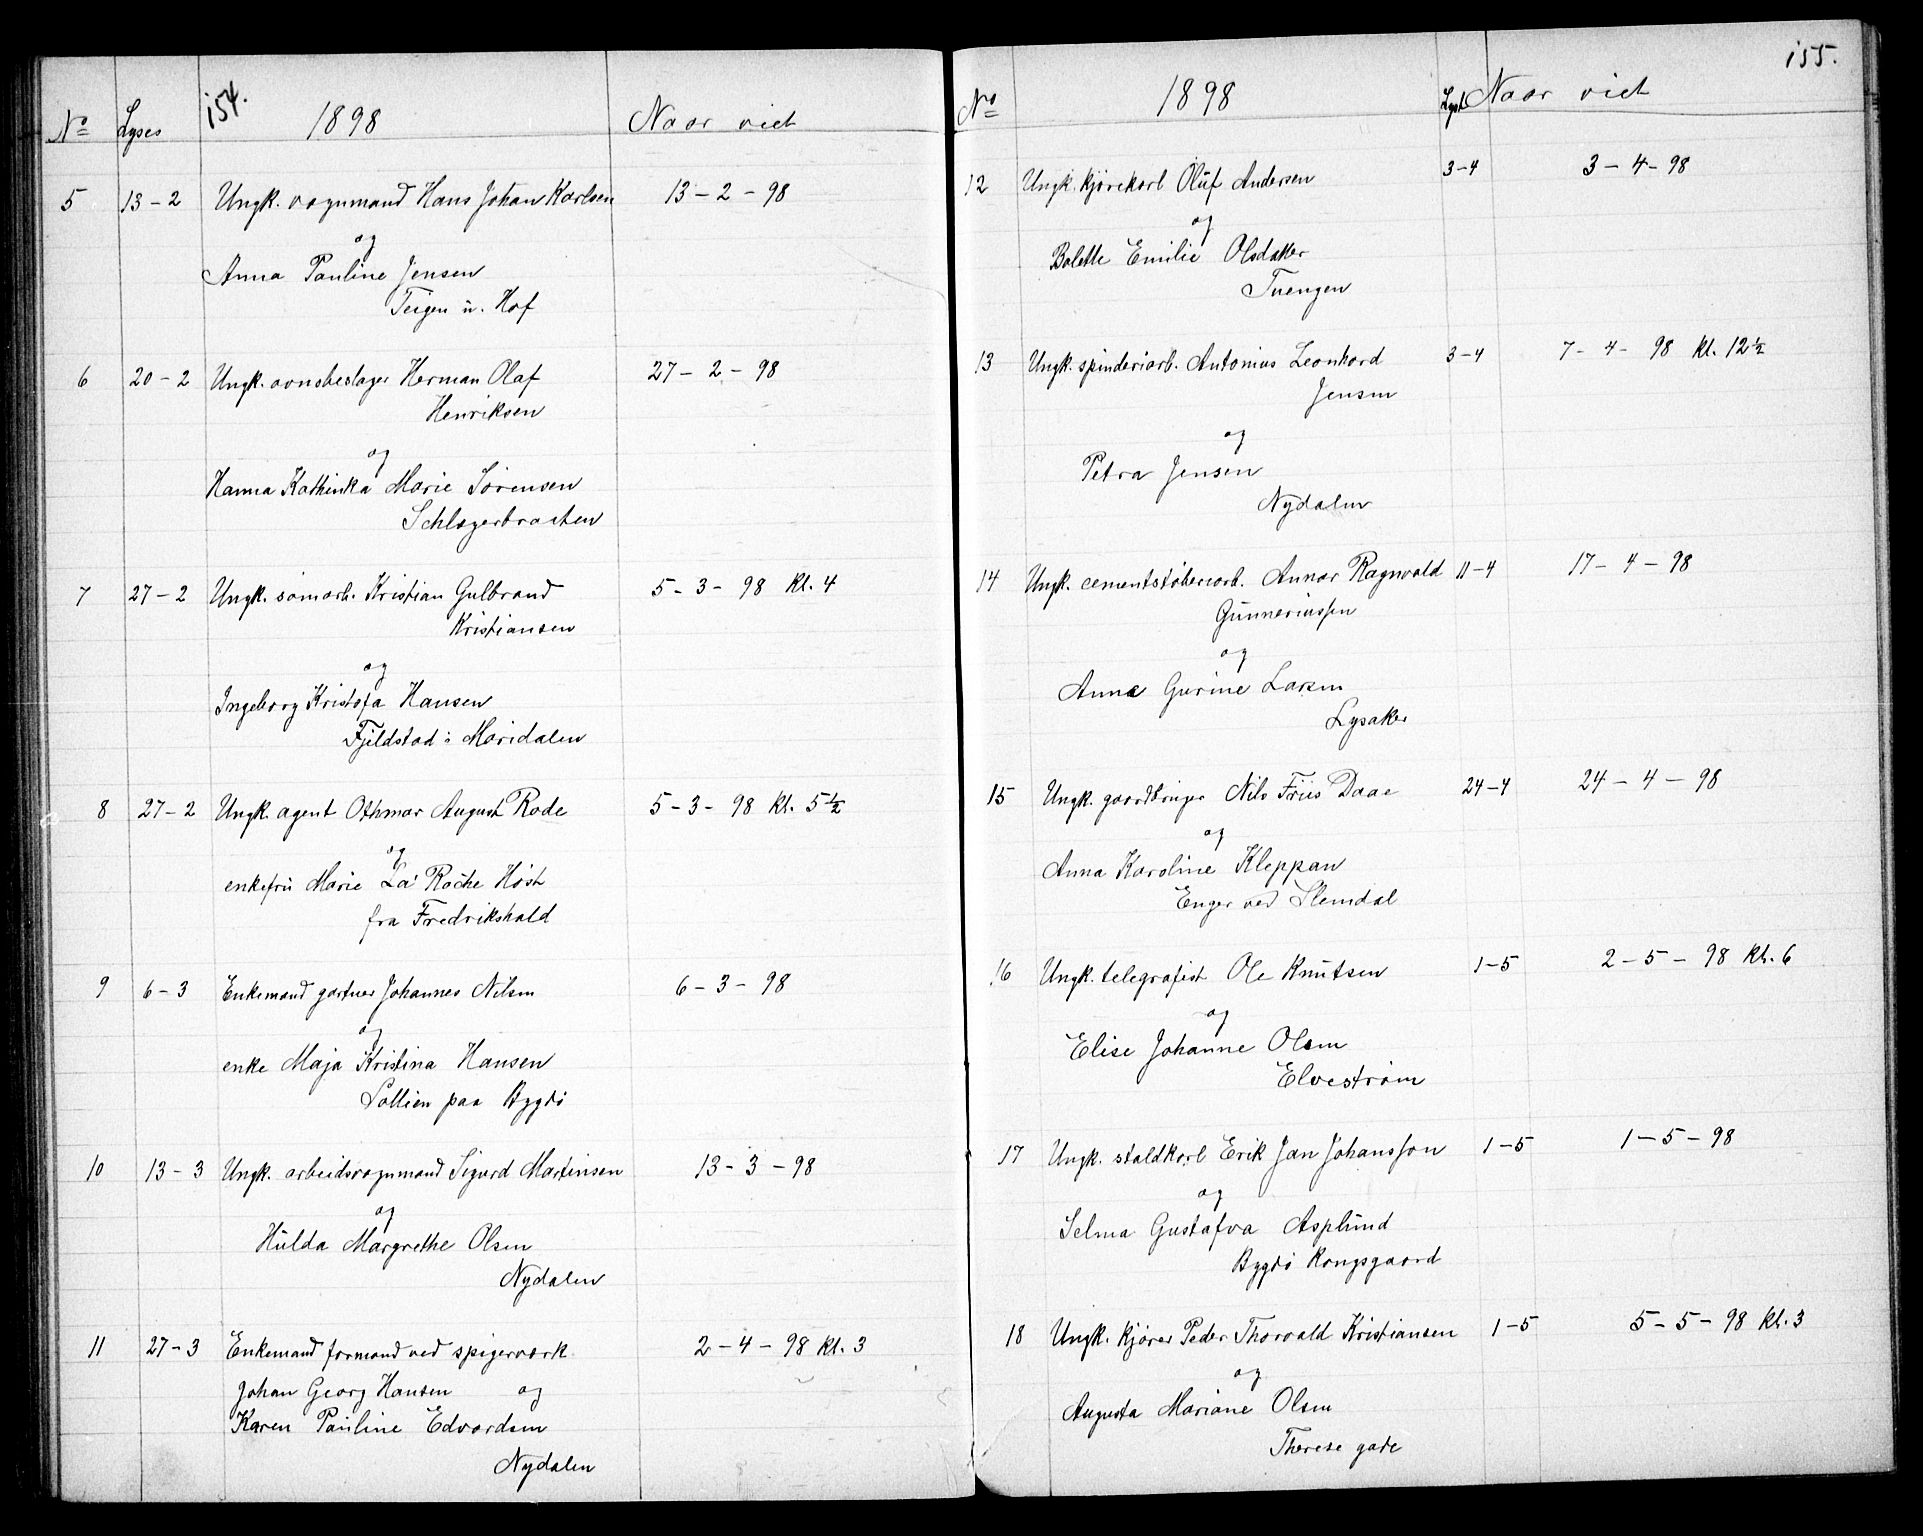 154.
No Lyses 1898 Naar viet
5 13-2 Ungk. vognmand Hans Johan Karlsen 13-2-98
og
Anna Pauline Jensen
Teigen u. Hof
6 20-2 Ungk. ovnsbeslager Herman Olaf 27-2-98
Henriksen
og
Hanna Kathinka Marie Sørensen
Schlagerbraaten
7 27-2 Ungk. sömarb. Kristian Gulbrand 5-3-98 kl. 4
Kristiansen
og
Ingeborg Kristofa Hansen
Fjeldstad i Maridalen
8 27-2 Ungk. agent Othmar August Rode 5-3-98 kl. 5½
og
enkefru Marie La Roche Höst
fra Fredrikshald
9 6-3 Enkemand gartner Johannes Nilsen 6-3-98
og
enke Maja Kristina Hansen
Sollien paa Bygdö
10 13-3 Ungk. arbeidsvognmand Sigurd Martinsen 13-3-98
og
Hulda Margrethe Olsen
Nydalen
11 27-3 Enkemand formand ved spigerverk 2-4-98 kl. 3
Johan Georg Hansen og
Karen Pauline Edvardsen
Nydalen
155.
No 1898 Lyst Naar viet
12 Ungk. kjörekarl Oluf Andersen 3-4 3-4-98
og
Bolette Emilie Olsdatter
Tuengen
13 Ungk. spinderiarb. Antonius Leonhard 3-4 7-4-98 kl. 12½
Jensen
og
Petra Jensen
Nydalen
14 Ungk. cementstöberiarb. Annar Ragnvald 11-4 17-4-98
Gunneriussen
og
Anna Gurine Larsen
Lysaker
15 Ungk. gaardbruger Nils Friis Daae 24-4 24-4-98
og
Anna Karoline Kleppan
Enger ved Slemdal
16 Ungk. telegrafist Ole Knutsen 1-5 2-5-98 kl. 6
og
Elise Johanne Olsen
Elveström
17 Ungk. staldkarl Erik Jan Johansson 1-5 1-5-98
og
Selma Gustafva Asplund
Bygdö Kongsgaard
18 Ungk. kjörer Peder Thorvald Kristiansen 1-5 5-5-98 kl. 3
og
Augusta Mariane Olsen
Therese gade